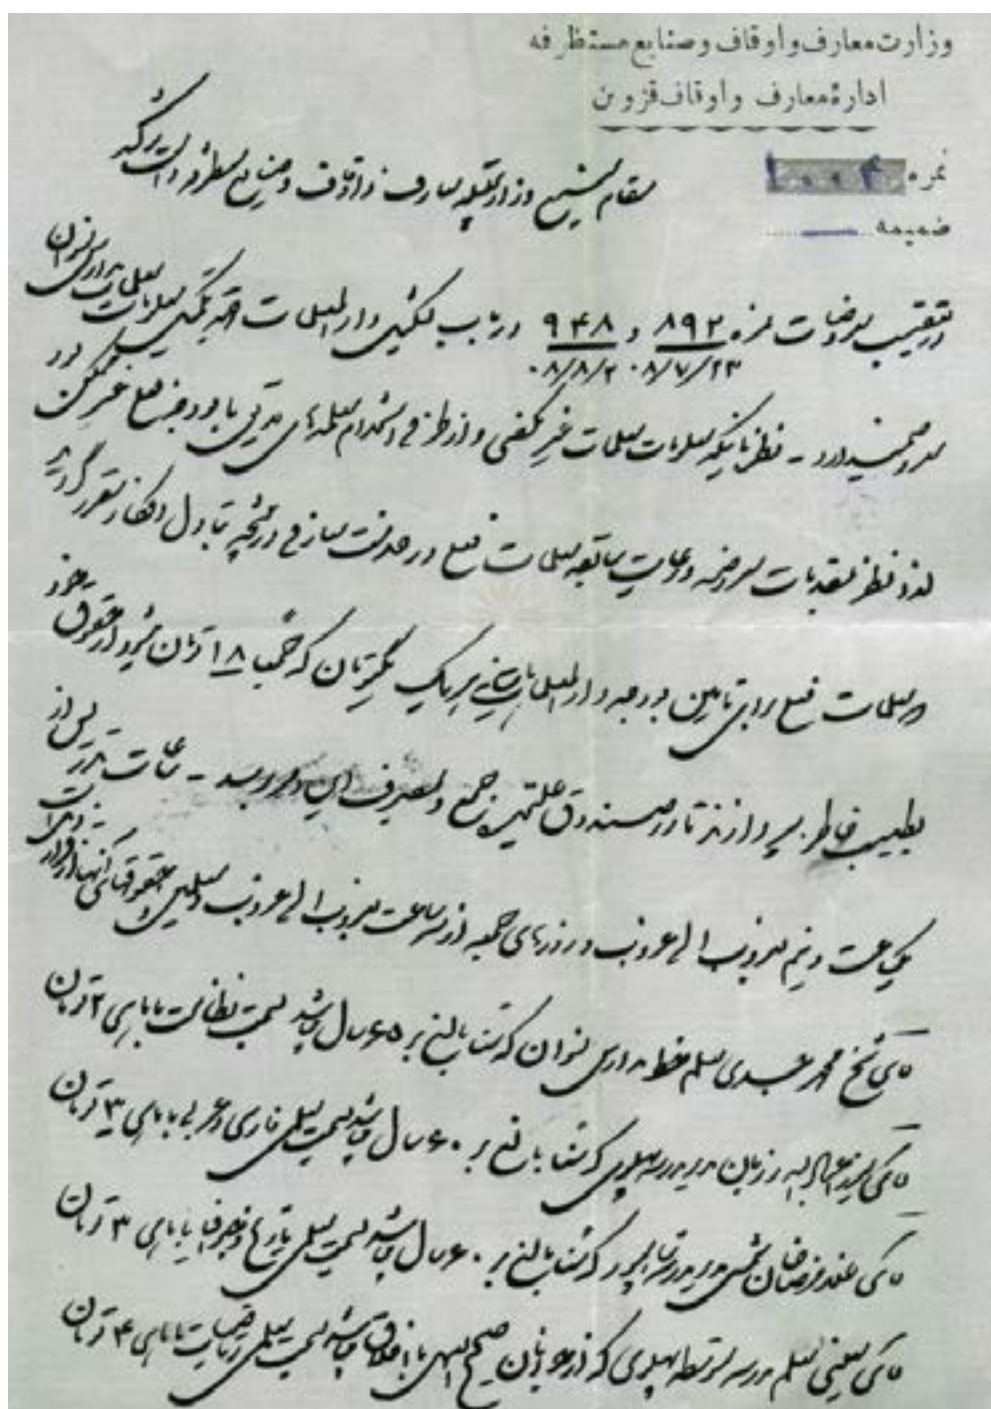 وزارت معارف و اوقاف و صنایع مستظرفه
ادارهٔ معارف و اوقاف قزوین
نمره ۱۰۰۴
ضمیمه
مقام منیع وزارت جلیله معارف و اوقاف و صنایع مستظرفه دامت شوکته
در تعقیب معروضات نمره ۸۹۲ و ۹۴۸ در باب تشکیل دارالمعلمات جهة تکمیل معلومات معلمات مدارس نسوان
۰۸/۷/۲۳ ۰۸/۸/۲
معروض میدارد - نظر باینکه معلومات معلمات غیر مکفی و از طرفی استخدام معلمه‌های مرکزی با بودجه فعلی غیر ممکن بود
لذا نظر بمقدمات معروضه و رعایت سابقه معلمات فعلی در خدمت معارف در نتیجه تبادل افکار مقرر گردید
معلمات فعلی برای تأمین بودجه دارالمعلمات هر یک یکتومان که جمعا ۱۸ تومان میشود از حقوق خود
بطیب خاطر بپردازند تا در صندوق علیحده جمع و بمصرف این امر برسد - ساعات تدریس از
یکساعت و نیم بغروب الی غروب و در روزهای جمعه از سه ساعت بغروب الی غروب و معلمین و حقوق آنها از قرار ذیل است
آقای شیخ محمد معلم خط مدارس نسوان که سنا بالغ بر ۶۵ سال میباشد بسمت نظامت با ماهی ۲ تومان
آقای سید مدیر مدرسه پهلوی که سنا بالغ بر ۶۰ سال میباشد بسمت معلمی فارسی و عربی با ماهی ۳ تومان
آقای خان شمس مدیر مدرسه که سنا بالغ بر ۶۰ سال میباشد بسمت معلمی تاریخ و جغرافیا با ماهی ۳ تومان
آقای معینی معلم مدرسه متوسطه پهلوی که از جوانان صحیح العمل با اخلاق میباشد بسمت معلمی ریاضیات با ماهی ۴ تومان